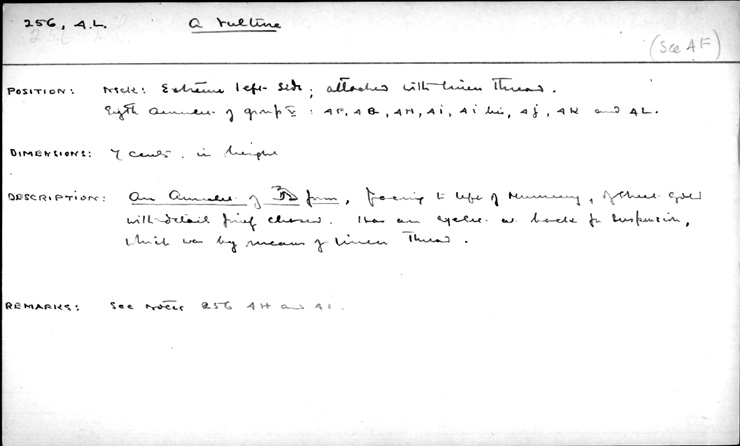 256, A.L. A vulture
(See AF)
POSITION: Neck: Extreme left side; attached with linen thread.
Eighth Amulet of group V: AF, AG, AH, Ai, Ai bis, Aj, AK and AL.
DIMENSIONS: 7 cents. in height
DESCRIPTION: An Amulet of form, facing to left of mummy, of sheet gold
with detail finely chased. Has an eyelet at back for suspension,
which was by means of linen thread.
REMARKS: See notes 256 AH and Ai.